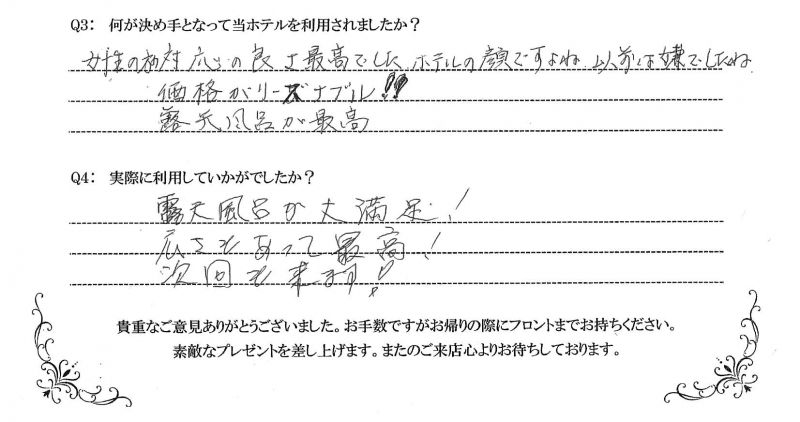 Q3： 何が決め手となって当ホテルを利用されましたか？
女性の初対応の良さ最高でした ホテルの顔ですよね 以前は嫌でしたね
価格がリーズナブル！！
露天風呂が最高
Q4： 実際に利用していかがでしたか？
露天風呂が大満足！
広さもあって最高！
次回も来ます！！
貴重なご意見ありがとうございました。お手数ですがお帰りの際にフロントまでお持ちください。
素敵なプレゼントを差し上げます。またのご来店心よりお待ちしております。